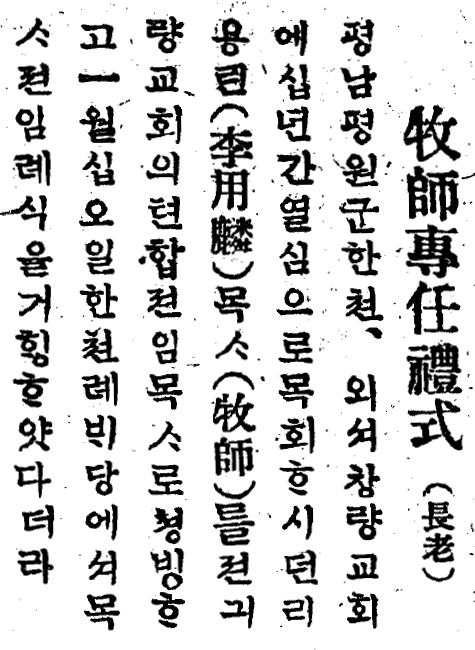 牧師專任禮式 (長老)
평남평원군한쳔、 외셔창량교회
에십년간열심으로목회ᄒᆞ시던리
용린(李用麟)목ᄉᆞ(牧師)를젼긔
량교회의련합젼임목ᄉᆞ로쳥빙ᄒᆞ
고一월십오일한쳔례ᄇᆡ당에셔목
ᄉᆞ젼임례식을거ᄒᆡᆼᄒᆞ얏다더라